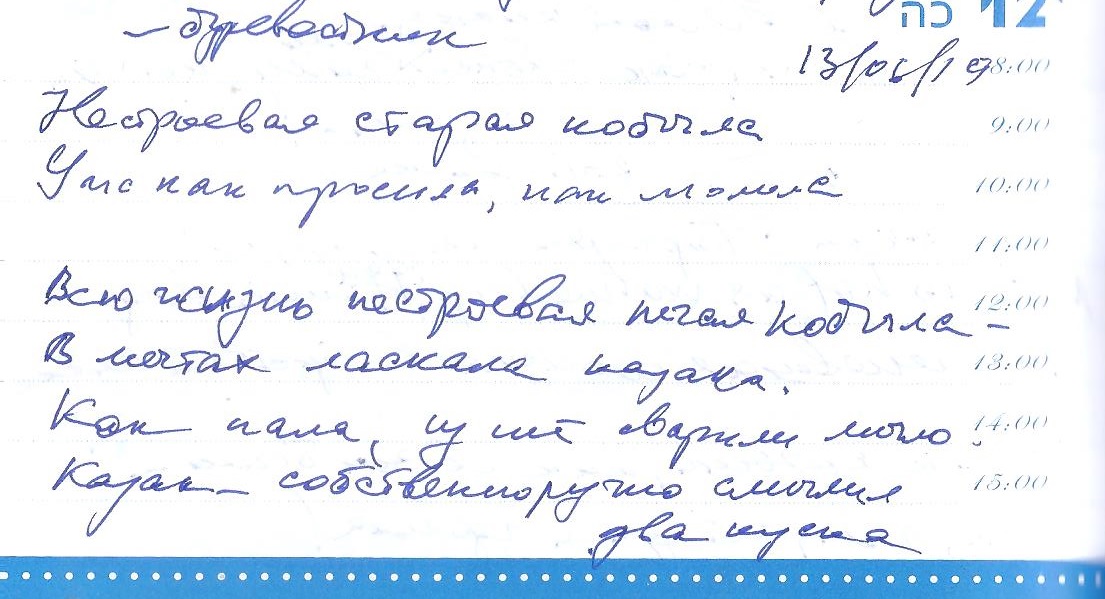 כה 12
– буревестник
13/06/19 8:00
Нестроевая старая кобыла 9:00
Уж как просила, как молила 10:00
11:00
Всю жизнь нестроевая пегая кобыла – 12:00
В мечтах ласкала казака. 13:00
Как пала, из неё сварили мыло. 14:00
Казак – собственноручно смылил 15:00
два куска